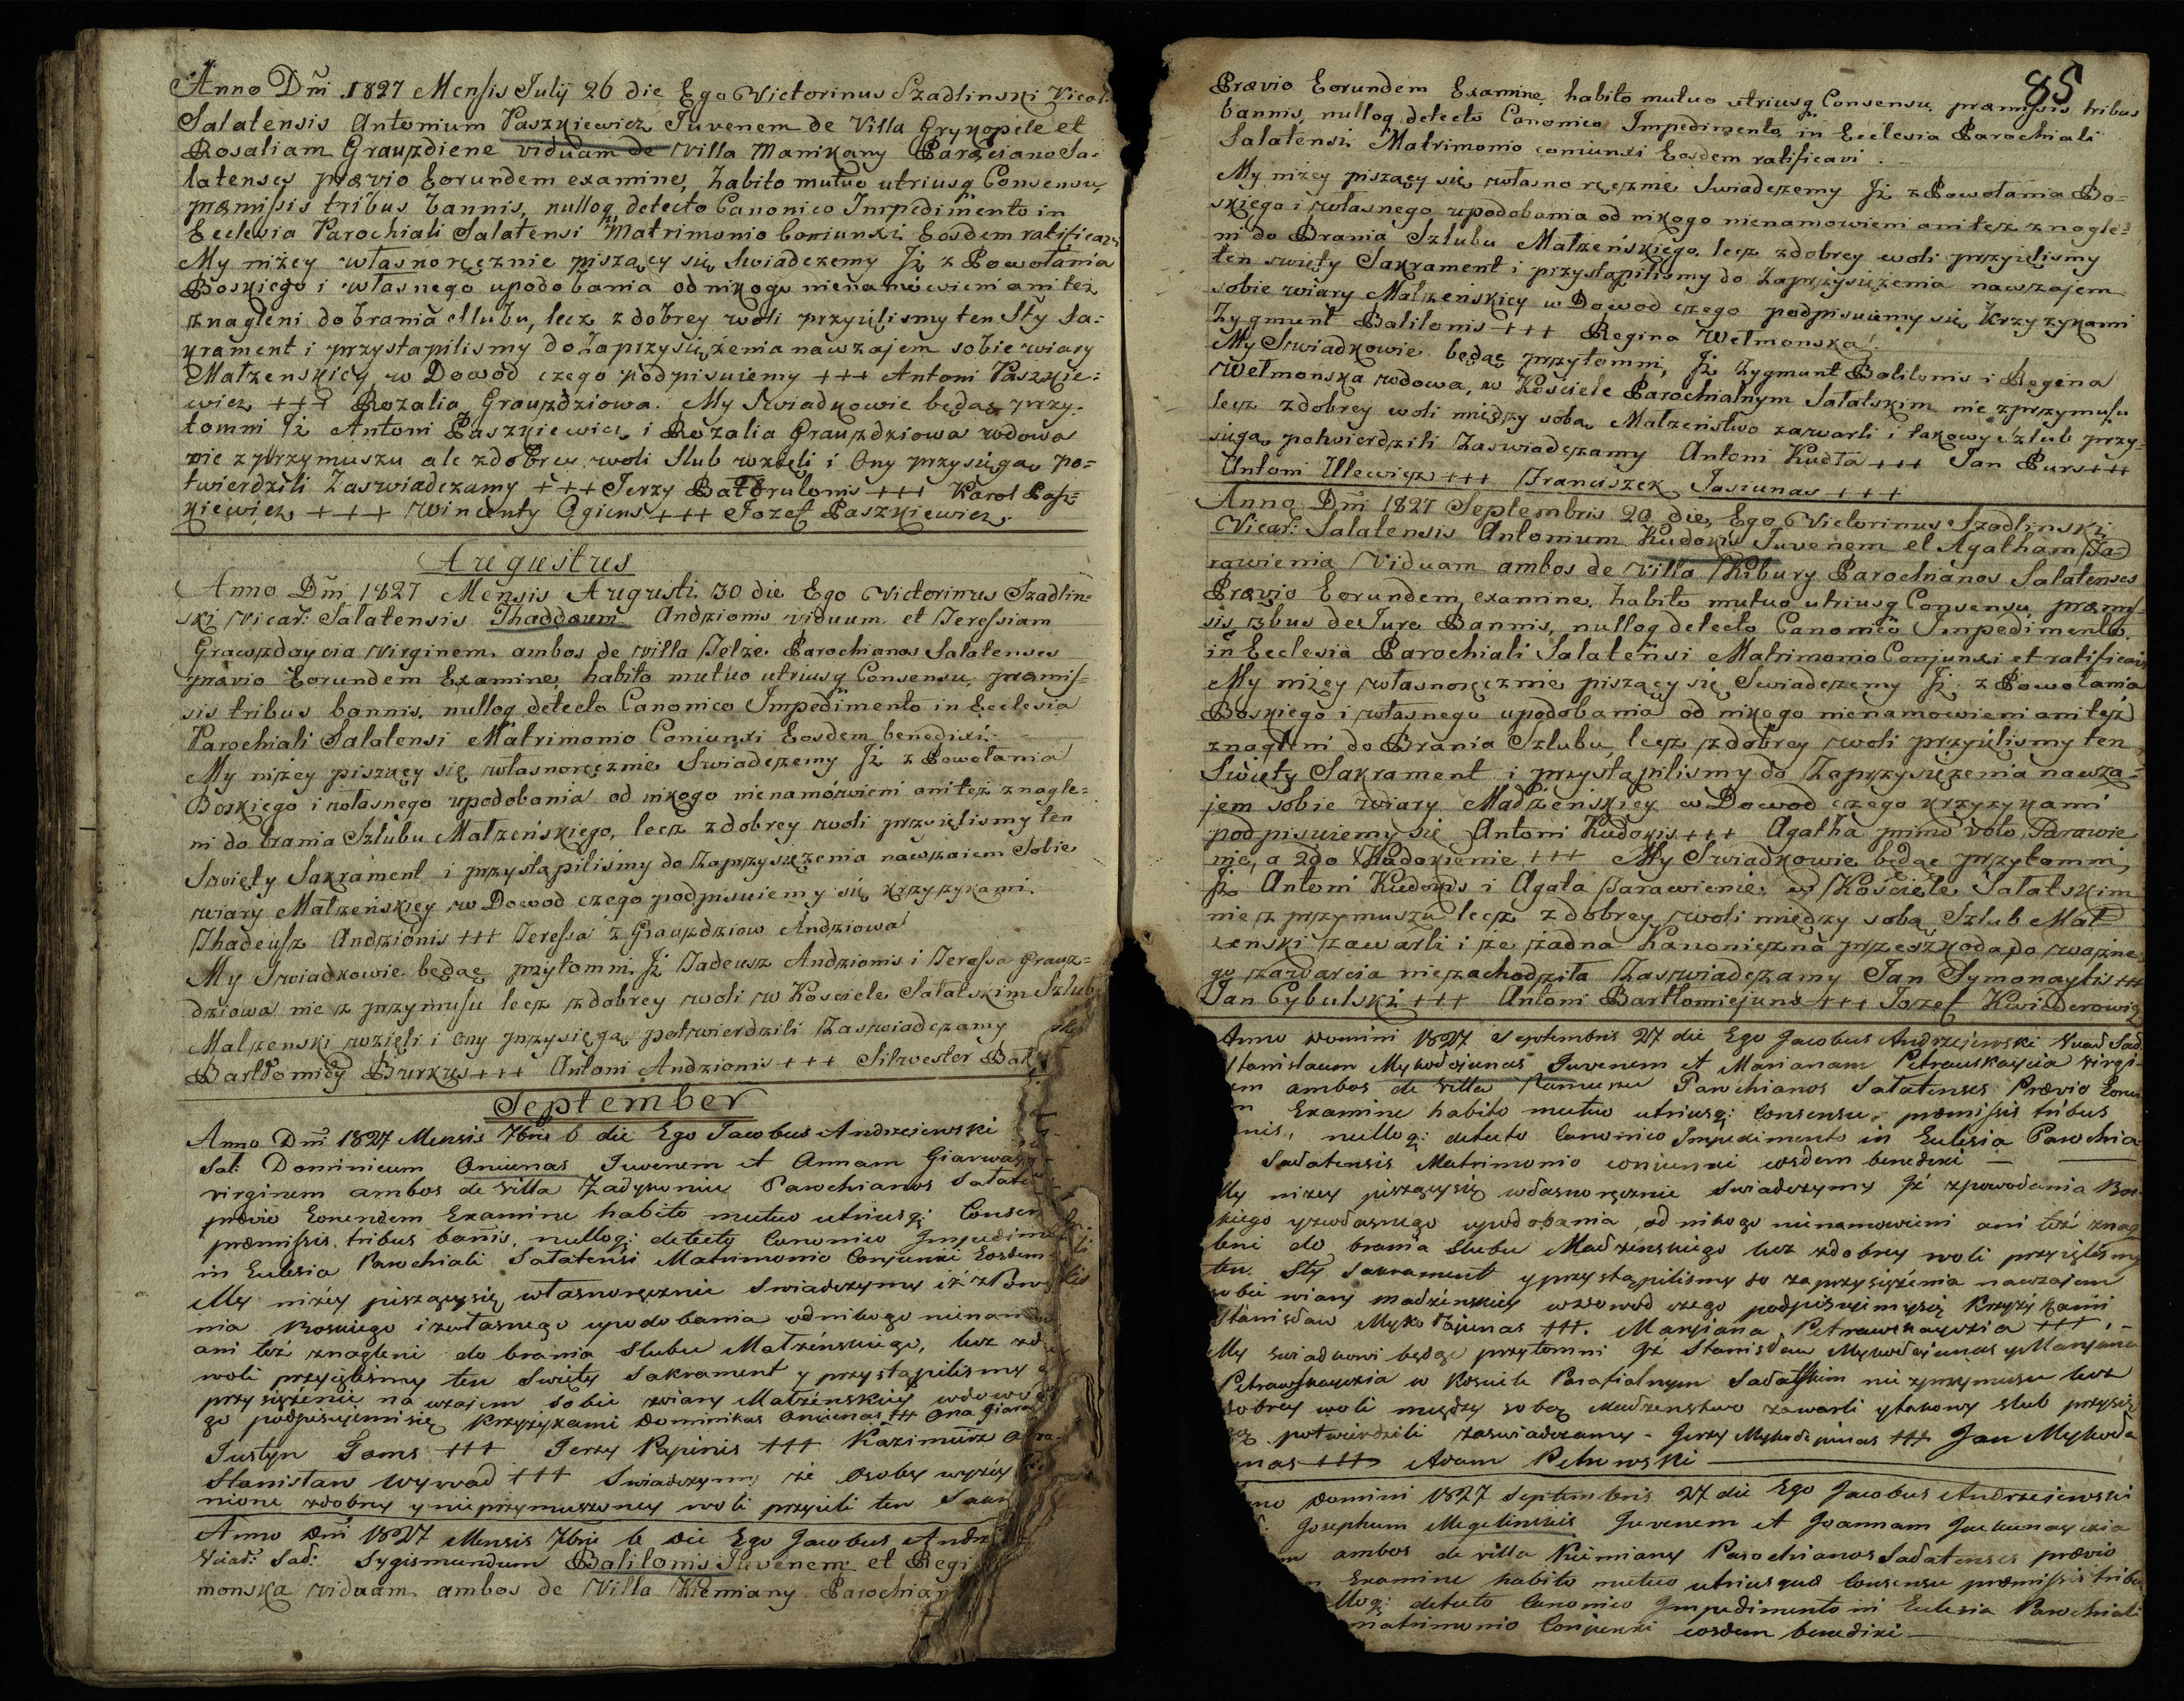 Anno Dñi 1827 Mensis Julij 26 die Ego Victorinus Szadlinski Vicar.
Salatensis Antonium Paszkiewicz Juvenem de Villa Grykopele et
Rosaliam Grauzdiene viduam de Villa Manikany Parocianos Sa=
latenses prævio Eorundem examine, habito mutuo utriusq Consensu,
præmissis tribus bannis, nulloq detecto Canonico Impedimento in
Ecclesia Parochiali Salatensi Matrimonio Coniunxi Eosdem ratificavi
My niżey własnoręcznie piszący się Swiadczemy Jż z Powołania
Boskiego i własnego upodobania od nikogo nienamowieni ani też
znagleni do brania Slubu, lecz z dobrey woli przyielismy ten Sty Sa=
krament i przystąpilismy do Zaprzysiężenia nawzajem sobie wiary
Małzenskiey, w Dowod czego podpisuiemy +++ Antoni Paszkie=
wicz +++ Rozalia Grauzdziowa. My Swiadkowie będąc przy=
tomni Jż Antoni Paszkiewicz i Rozalia Grauzdziowa wdowa
nie z przymuszu ale z dobrey woli Slub wzieli i Ony przysięgą po=
twierdzili Zaswiadczamy +++ Jerzy Battrulonis +++ Karol Pasz=
kiewicz +++ Wincenty Ogiens +++ Jozef Paszkiewicz.
Augustus
Anno Dñi 1827 Mensis Augusti 30 die Ego Victorinus Szadlin=
ski Vicar: Salatensis Thaddæum Andzionis viduum et Teressiam
Grawzdaycia Virginem ambos de Villa Telże Parochianos Salatenses
prævio Eorundem Examine, habito mutuo utriusq Consensu, præmis=
sis tribus bannis, nulloq detecto Canonico Impedimento in Ecclesia
Parochiali Salatensi Matrimonio Coniunxi Eosdem benedixi.
My niżey piszący się własnoręcznie Swiadczemy Jż z Powołania
Boskiego i własnego upodobania od nikogo nienamówieni ani też znagle=
ni do brania Szlubu Małzeńskiego, lecz z dobrey woli przyielismy ten
Swięty Sakrament i przystąpiliśmy do Zaprzysiężenia nawzaiem Sobie
wiary Małzeńskiey w Dowod czego podpisuiemy się krzyzykami.
Thadeusz Andzionis +++ Teressa z Grauzdziow Andziowa
My Swiadkowie będąc przytomni, Jż Tadeusz Andzionis i Teressa Grauz=
dziowa nie z przymusu lecz z dobrey woli w Kosciele Salatskim Szlub
Malzenski wzięli i Ony przysięgą potwierdzili Zaswiadczamy
Bartłomiey Burkus +++ Antoni Andzionis +++ Silwester Bał
September
Anno Dñi 1827 Mensis 7bris 6 die Ego Jacobus Andrzejewski
Sal: Dominicum Oniunas Juvenem et Annam Giarwas
virginem ambos de Villa Zadykunie Parochianos Salate
prævio Eorundem Examine habito mutuo utriusq: Consen
præmissis tribus bañis, nulloq: detecto Canonico Impedim
in Eclesia Parochiali Salatensi Matrimonio Conjunxi Eosdem
My niżey piszącysię własnoręcznie Swiadczymy iż z Pow
nia Boskiego i własnego upodobania odnikogo nienam
ani też znagleni do brania Slubu Małzeńskiego, lecz zd
woli przyięlismy ten Swięty Sakrament y przystąpilismy
przysiężenie nawzajem sobie wiary Małzeńskiey wdowo
go podpisujemisię krzyzykami Dominikas Oniunas +++ Ona Giar
Justyn Tams +++ Jerzy Papinis +++ Kazimierz
Stanisław Wywad +++ Swiadczym że Osoby wyżey
nione zdobrey y nieprzymuszoney woli przyieli ten Sakr
Anno Dñi 1827 Mensis 7bris 6 Die Ego Jacobus Andr
Vicar: Sal: Sygismundum Balilonis Juvenem et Regi
monska viduam ambos de Villa Kiemiany Parochian
85
Prævio Eorundem Examine, habito mutuo utriusq Consensu, præmissis tribus
bannis, nulloq detecto Canonico Impedimento in Ecclesia Parochiali
Salatensi Matrimonio coniunxi Eosdem ratificavi.
My niżey piszący się własno ręcznie Swiadczemy Jż z Powołania Bo=
skiego i własnego upodobania od nikogo nienamowieni ani też znagle=
ni do Brania Szlubu Małzeńskiego, lecz zdobrey woli przyielismy
ten swięty Sakrament i przystąpilismy do Zaprzysiężenia nawzajem
sobie wiary Małzeńskiey w Dowod czego podpisuiemy się Krzyzykami
Zygmunt Balilonis +++ Regina Wełmonska.
My Swiadkowie będąc przytomni, Jż Zygmunt Balilonis i Regina
Wełmonska wdowa, w Kościele Parochialnym Salatskim nie zprzymusu
lecz zdobrey woli między sobą Malzeństwo zawarli i takowy Szlub przy=
sięgą potwierdzili Zaswiadczamy Antoni Kudła +++ Jan Purs +++
Antoni Ulewicz +++ Franciszek Jasiunas +++
Anno Dñi 1827 Septembris 20 die, Ego Victorinus Szadlinski,
Vicar: Salatensis Antonium Kudokis Juvenem et Agatham Ta=
rawienia Viduam ambos de Villa Kibury Parochianos Salatenses
Prævio Eorundem examine, habito mutuo utriusq Consensu, præmis=
sis 3bus de Jure Bannis, nulloq detecto Canonico Impedimento,
in Ecclesia Parochiali Salatensi Matrimonio Conjunxi et ratificavi
My niżey własnoręcznie piszący się Swiadczemy Jż z Powołania
Boskiego i własnego upodobania od nikogo nienamowieni ani też
znagleni do Brania Szlubu, lecz z dobrey woli przyielismy ten
Swięty Sakrament i przystąpilismy do Zaprzysiężenia nawza=
jem sobie wiary Madżeńskiey w Dowod czego krzyzykami
podpisuiemy się Antoni Kudokis +++ Agatha primo voto Tarawie
nie, a 2do Kudokienie +++ My Swiadkowie będąc przytomni,
Jż Antoni Kudokis i Agata Tarawienie w Kościele Salatskim
nie z przymuszu lecz z dobrey woli między sobą Szlub Mał
żenski zawarli i że żadna Kanoniczna przeszkoda do ważne
go zawarcia niezachodziła Zaswiadczamy Jan Symonaytis +++
Jan Cybulski +++ Antoni Bartłomiejuns +++ Jozef Kwiderowicz
Anno Domini 1827 Septembris 27 die Ego Jacobus Andrzejewski Vicar Sal
Stanisłaum Mykołojunas Juvenem et Marianam Petrauskaycia Virgi-
em ambos de Villa Ramuni Parochianos Salatenses Prævio Eoru
Examine habito mutuo utriusq: Consensu, præmissis tribus
nis, nulloq: detecto Canonico Impedimento in Eclesia Parochia
Salatensis Matrimonio conjunxi eosdem benedixi —
My niżey piszącysię własnoręcznie Swiadczymy Jż zpowołania Bos
kiego yzwłasnego upodobania, od nikogo nienamowieni ani też znag
leni do brania Slubu Madżenskiego lecz zdobrey woli przyięlismy
ten Sty Sakrament y przystąpilismy do zaprzysiężenia nawzajem
sobie wiary madżenskiey wdowod czego podpisujemysię Krzyżykami
Stanisław Mykołajunas +++. Maryjana Petrawskayczia +++. -
My swiadkowi będąc przytomni Jż Stanisław Mykołajunas y Maryjana
Petrawskayczia w Kosciele Parafialnym Sałatskim nie zprzymusu lecz
dobrey woli między sobą Madżenstwo zawarli y takowy slub przysię
gą potwierdzili zaswiadczamy - Jerzy Mykołajunas +++ Jan Mykoła
unas +++ Adam Petrowski
no Domini 1827 Septembris 27 die Ego Jacobus Andrzeiewski
Josephum Megelinskis Juvenem et Joannam Jackunaycia
m ambos de villa Kiemiany Parochianos Salatenses prævio
Examine habito mutuo utriusque Consensu præmissis tribu
lloq: detecto Canonico Impedimento in Eclesia Parochiali
matrimonio Conjunxi eosdem benedixi —